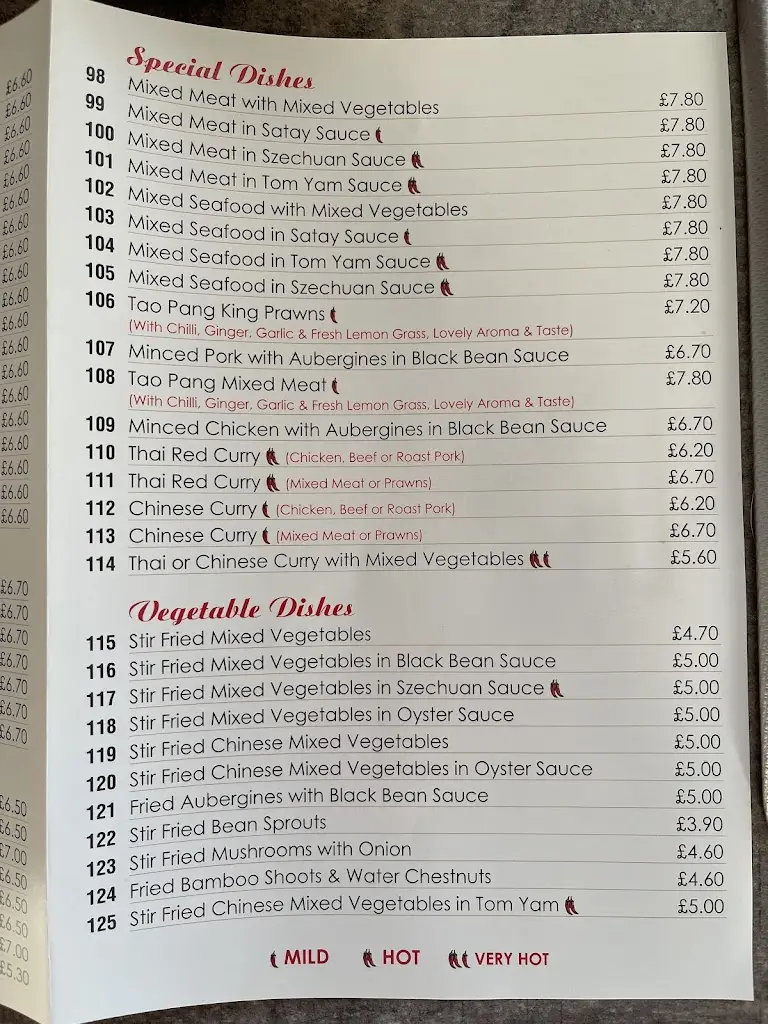 £6.60
£6.60
£6.60
£6.60
£6.60
£6.60
£6.60
£6.60
£6.60
£6.60
£6.60
£6.60
£6.60
£6.60
£6.60
£6.60
£6.60
£6.60
£6.60
£6.70
£6.70
£6.70
£6.70
£6.70
£6.70
£6.70
£6.50
£6.50
£7.00
£6.50
£6.50
£6.50
£7.00
£5.30
Special Dishes
98 Mixed Meat with Mixed Vegetables £7.80
99 Mixed Meat in Satay Sauce £7.80
100 Mixed Meat in Szechuan Sauce £7.80
101 Mixed Meat in Tom Yam Sauce £7.80
102 Mixed Seafood with Mixed Vegetables £7.80
103 Mixed Seafood in Satay Sauce £7.80
104 Mixed Seafood in Tom Yam Sauce £7.80
105 Mixed Seafood in Szechuan Sauce £7.80
106 Tao Pang King Prawns £7.20
(With Chilli, Ginger, Garlic & Fresh Lemon Grass, Lovely Aroma & Taste)
107 Minced Pork with Aubergines in Black Bean Sauce £6.70
108 Tao Pang Mixed Meat £7.80
(With Chilli, Ginger, Garlic & Fresh Lemon Grass, Lovely Aroma & Taste)
109 Minced Chicken with Aubergines in Black Bean Sauce £6.70
110 Thai Red Curry (Chicken, Beef or Roast Pork) £6.20
111 Thai Red Curry (Mixed Meat or Prawns) £6.70
112 Chinese Curry (Chicken, Beef or Roast Pork) £6.20
113 Chinese Curry (Mixed Meat or Prawns) £6.70
114 Thai or Chinese Curry with Mixed Vegetables £5.60
Vegetable Dishes
115 Stir Fried Mixed Vegetables £4.70
116 Stir Fried Mixed Vegetables in Black Bean Sauce £5.00
117 Stir Fried Mixed Vegetables in Szechuan Sauce £5.00
118 Stir Fried Mixed Vegetables in Oyster Sauce £5.00
119 Stir Fried Chinese Mixed Vegetables £5.00
120 Stir Fried Chinese Mixed Vegetables in Oyster Sauce £5.00
121 Fried Aubergines with Black Bean Sauce £5.00
122 Stir Fried Bean Sprouts £3.90
123 Stir Fried Mushrooms with Onion £4.60
124 Fried Bamboo Shoots & Water Chestnuts £4.60
125 Stir Fried Chinese Mixed Vegetables in Tom Yam £5.00
MILD HOT VERY HOT